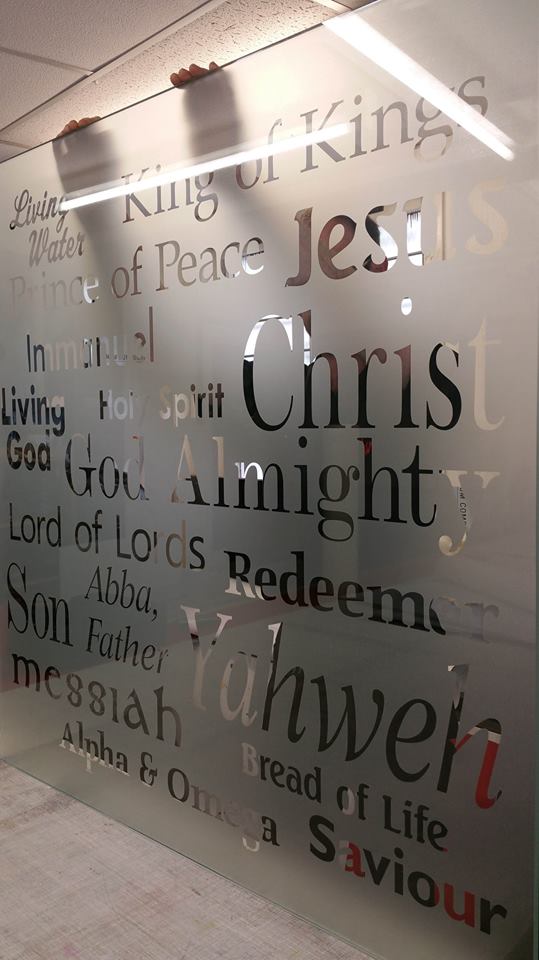 King of Kings
Living
Water
Jesus
Prince of Peace
Immanuel
Christ
Living
God
Holy Spirit
God Almighty
Lord of Lords
Redeemer
Son
Abba,
Father
Yahweh
messiah
Bread of Life
Alpha & Omega
Saviour